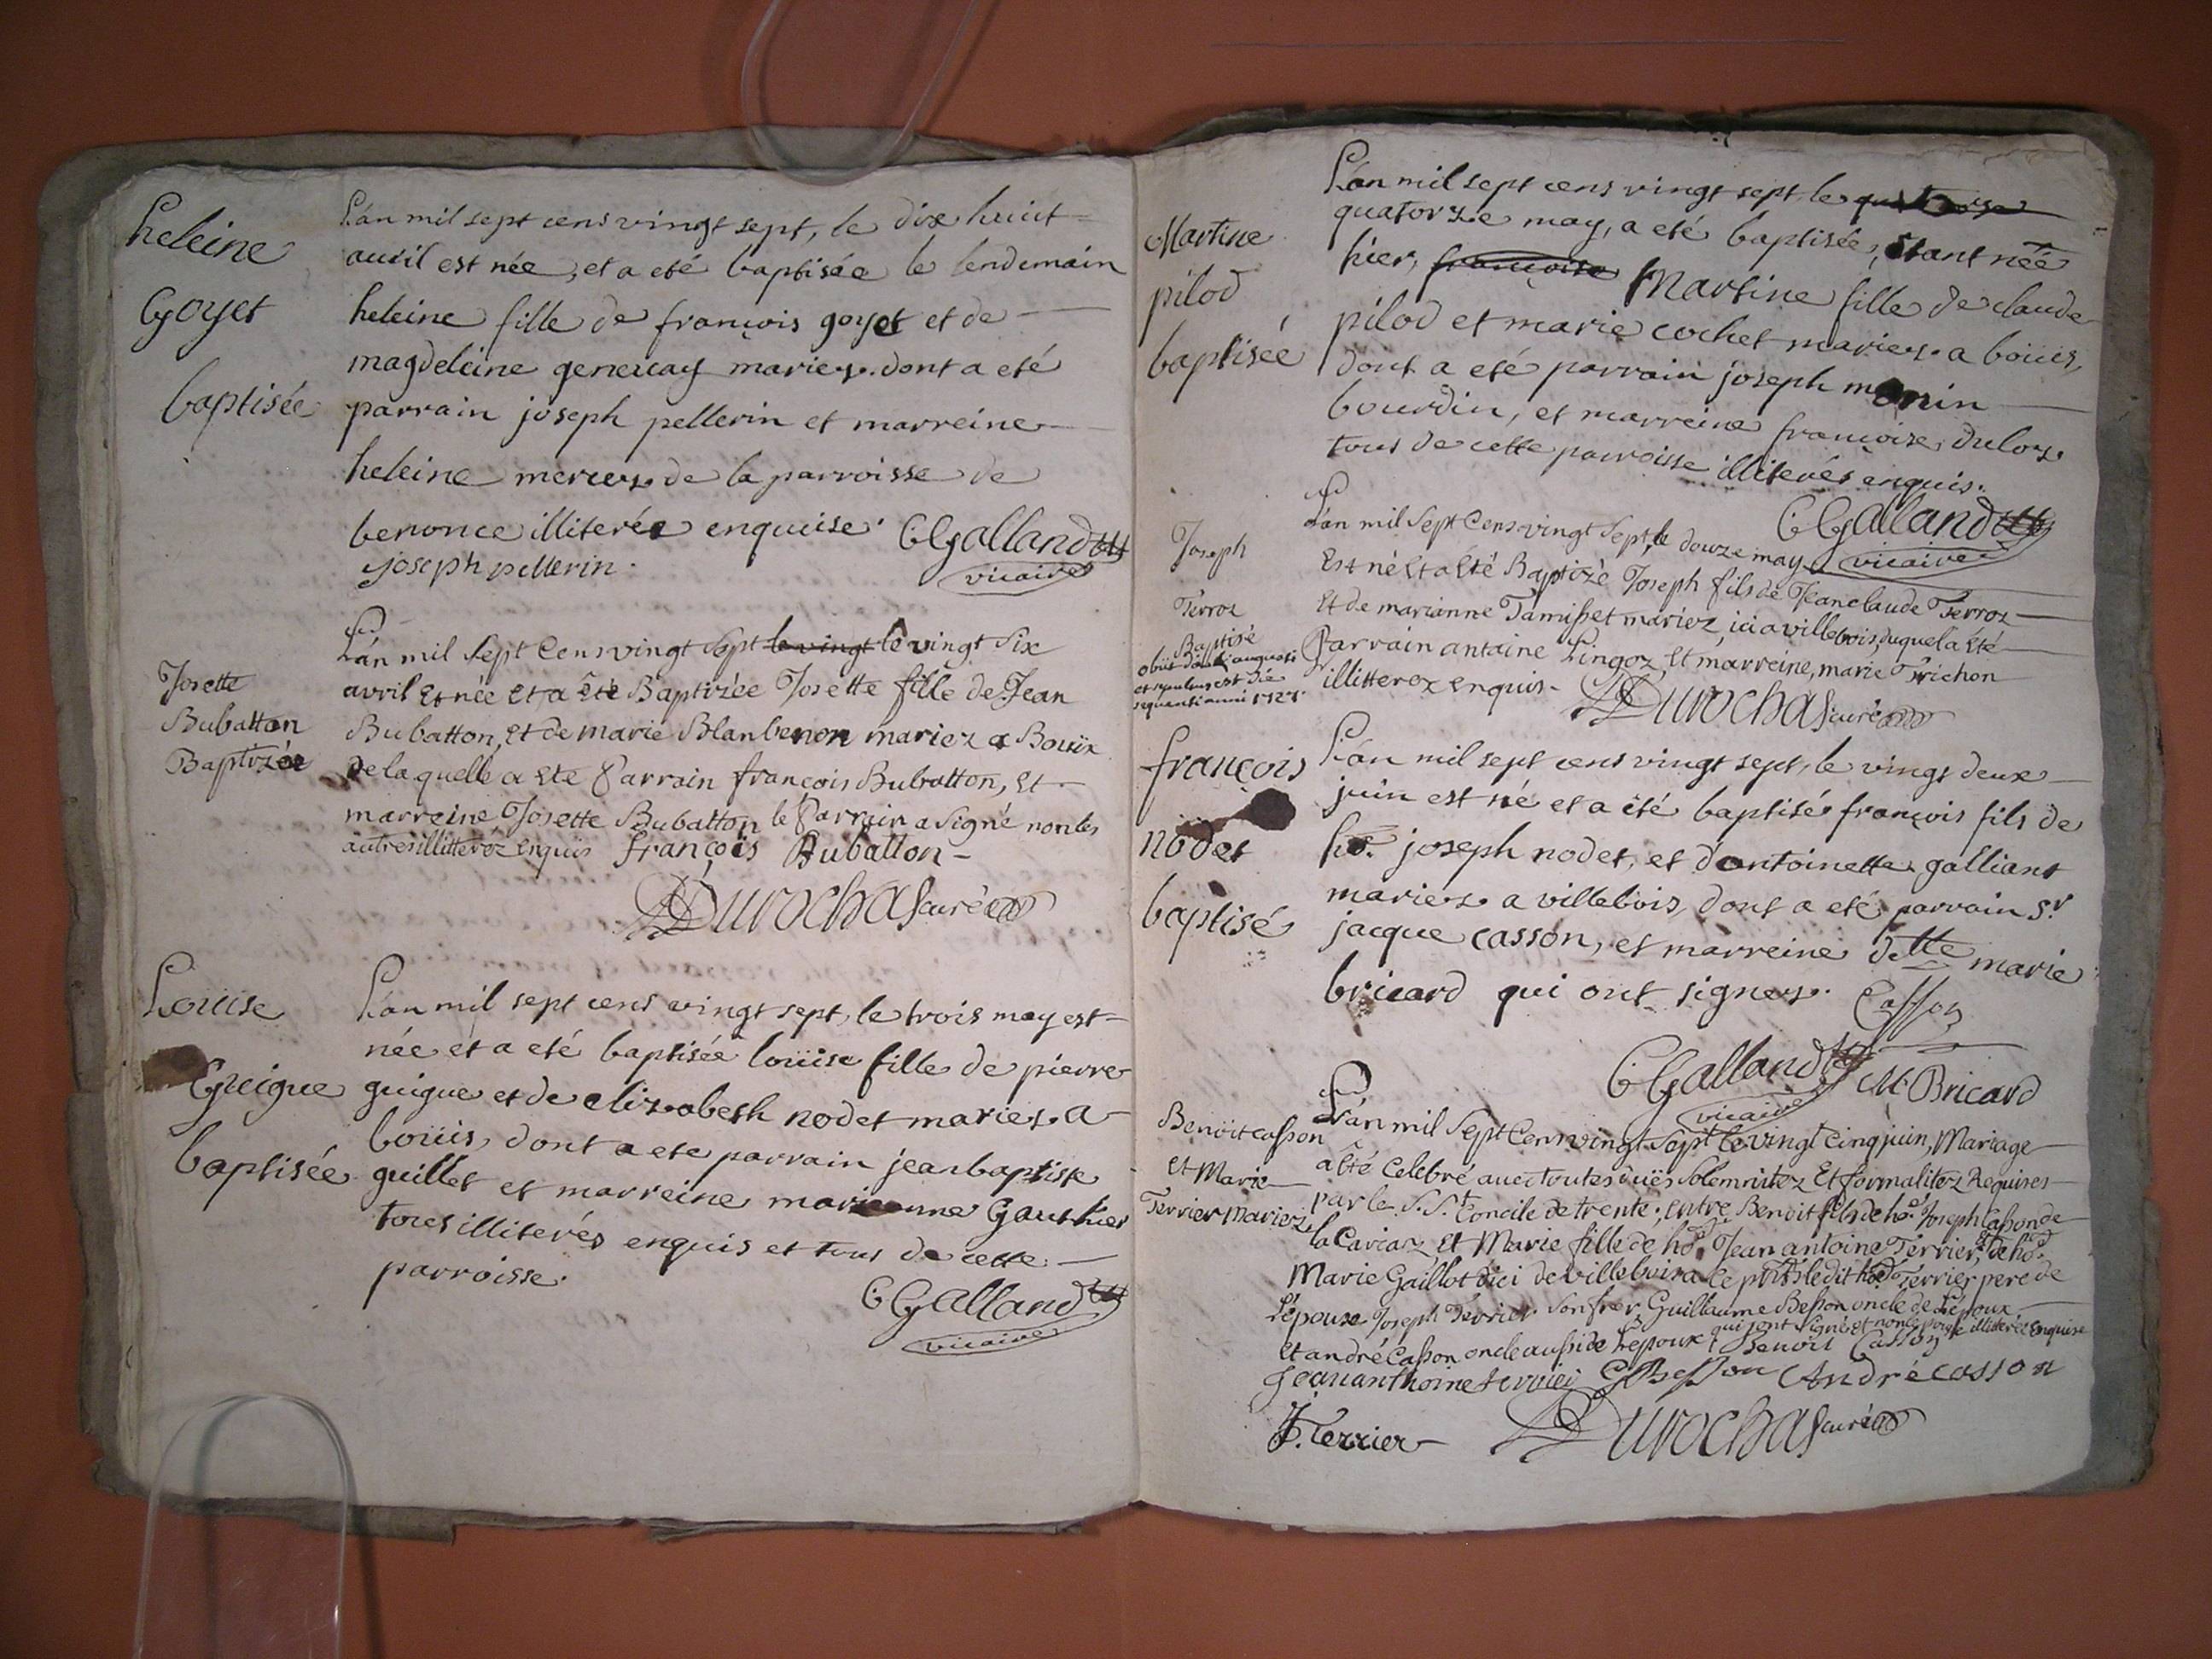 heleine
Goyet
baptisée
L'an mil sept cens vingt sept, le dix huict
auril est née, et a eté baptisée le lendemain
heleine fille de françois goyet et de
magdeleine genercay mariez. dont a eté
parrain joseph pellerin et marreine
heleine mercez. de la parroisse de
benonce illiterée enquise. CGalland
joseph pellerin. vicaire
Josette
Bubatton
Baptizée
L'an mil Sept Cens vingt Sept le vingt le vingt Six
avril Et née Et a été Baptizée Josette fille de Jean
Bubatton, Et de marie Blanbenon mariez a Bouix
De laquelle a Eté Parrain françois Bubatton, Et
marreine Josette Bubatton le Parrain a Signé non les
autres illitteréz Enquis françois Bubatton
Durochas curé
Loüise
Guigue
baptisée
L'an mil sept cens vingt sept, le trois may est
née et a eté baptisée loüise fille de pierre
guigue et de elizabesh nodet mariez. a
boüis, dont a ete parrain jean baptiste
guillet et marreine marieanne Gauthier
tous illiterés enquis et tous de cette
parroisse.
CGalland
vicaire
Martine
pilod
baptisée
L'an mil sept cens vingt sept, le quatorze
quatorze may, a eté baptisée, étant née
hier, françoise Martine fille de claude
pilod et marie cochet mariez. a boüis,
dont a eté parrain joseph monin
bourdin, et marreine françoise duloz.
tous de cette parroisse illiterés enquis.
CGalland
vicaire
Joseph
Terroz
Baptisé
obiit die augusti
et sepultus est die
sequenti anni 1727
L'an mil Sept Cens vingt Sept, le douze may
Est né Et a Eté Baptizé Joseph fils de Jeanclaude Terroz
Et de marianne Tamisset mariez, ici a villebois, duquel a Eté
Parrain antoine Lingoz Et marreine, marie Trichon
illitterez enquis
Durochas curé
françois
nodet
baptisé
L'an mil sept cens vingt sept, le vingt deux
juin est né et a été baptisé françois fils de
ho. joseph nodet, et d'antoinette galliant
mariez a villebois, dont a eté parrain Sr
jacque casson, et marreine delle marie
bricard qui ont signez. Casson
CGalland M Bricard
vicaire
Benoit Casson
et Marie
Terrier Mariez
L'an mil Sept Cens vingt Sept le vingt Cinq juin, Mariage
a Eté Celebré avec toutes düës Solemnitez Et formalitez Requises
par le S. St. Concile de trente; entre Benoit fils de ho. Joseph Casson de
la Cariaz, Et Marie fille de ho. Jean antoine Terrier, Et de ho.
Marie Gaillot dici de villebois a ce pnts ledit ho. Terrier pere de
L'épouse Joseph Terrier Son frer, Guillaume Besson oncle de L'époux
Et andré Casson oncle aussi de L'epoux qui sont Signé Et non l'epouse illiterée Enquise
Benoit Casson
Jeananthoine terrier GBesson André casson
J. Terrier Durochas curé